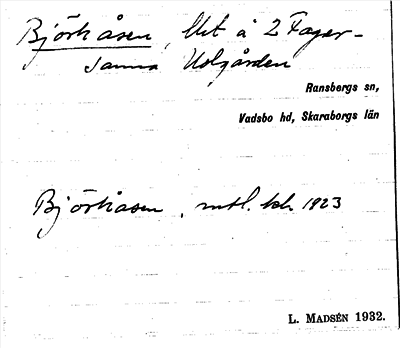 Björkåsen, Utt å 2 Fager-
sanna Utgården
Ransbergs sn,
Vadsbo hd, Skaraborgs län
Björkåsen, mtl. bl. 1923
L. MADSÉN 1932.